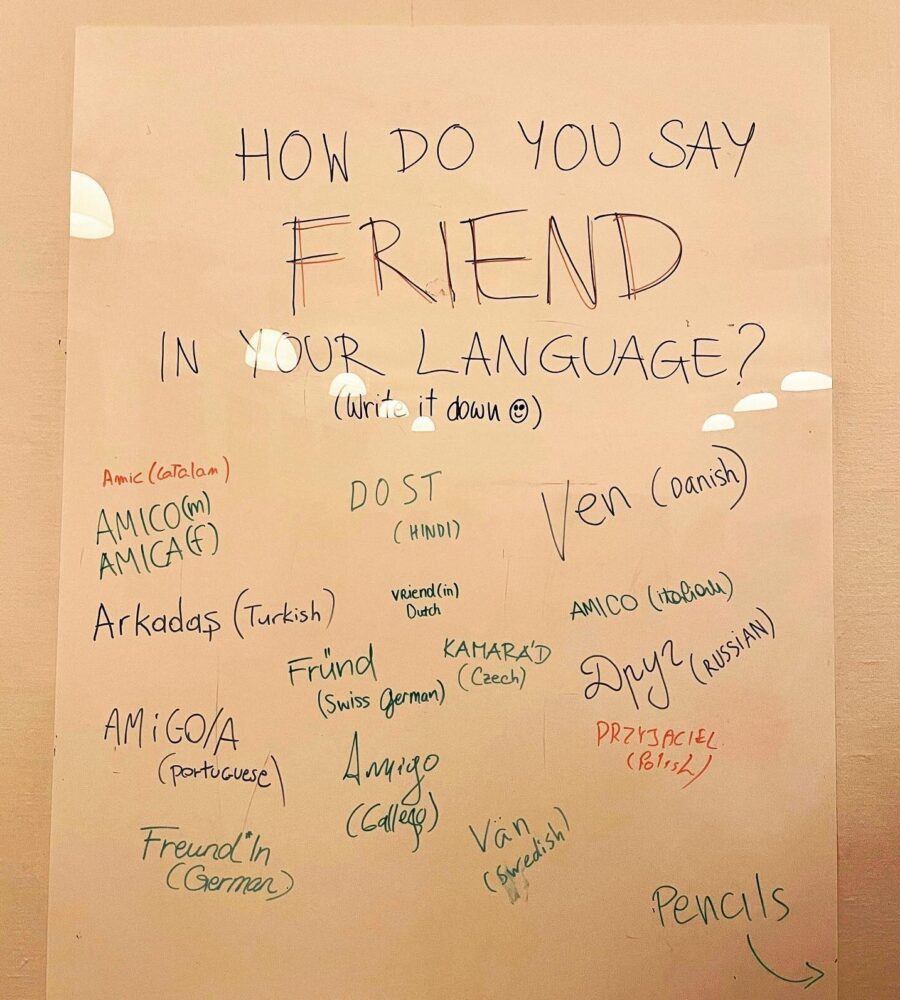 HOW DO YOU SAY
FRIEND
IN YOUR LANGUAGE?
(Write it down ☺)
Amic (Catalam)
AMICO(m)
AMICA(f)
DOST
(HINDI)
Ven (Danish)
Arkadaş (Turkish)
vRiend(in)
Dutch
AMICO (italiam)
Fründ
(Swiss German)
KAMARA'D
(Czech)
Друг (RUSSIAN)
AMiGO/A
(portuguese)
Amigo
(Gallego)
PRZYJACIEL
(PolisL)
Freund*In
(German)
Vän
(Swedish)
Pencils